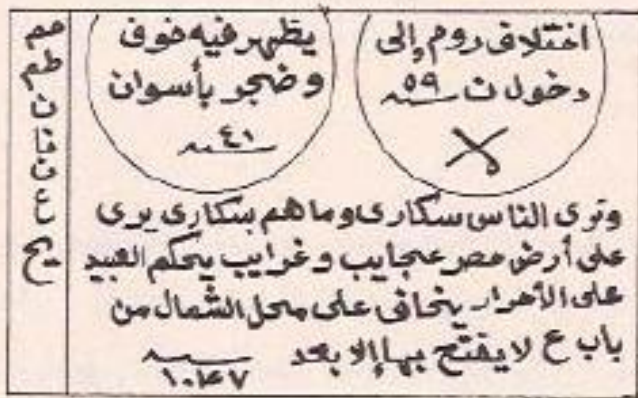 اختلاف روم إلى
دخول ت ٥٩
يظهر فيه خوف
وضجر بأسوان
٤١
وترى الناس سكارى وما هم بسكارى يرى
على أرض مصر عجايب وغرايب يحكم العبيد
على الأحرار يخافى على محل الشمال من
باب ع لا يفتح بها إلا بعد